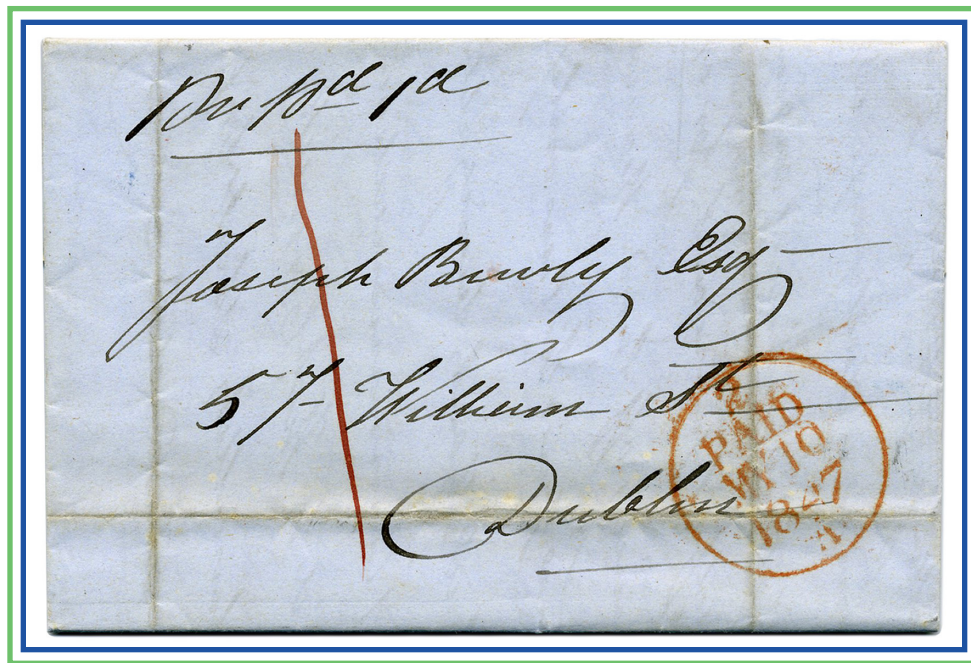 Pre pd 1d
Joseph Burly Esq
57 William St
Dublin
2
PAID
MY 10
1847
A